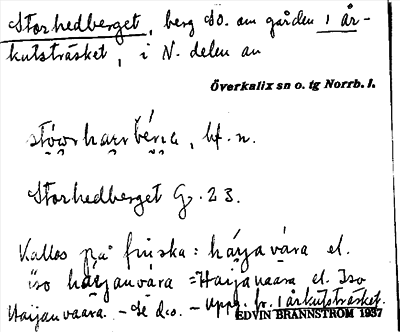 Storhedberget, berg SO. om gården 1 år-
kutsträsket, i N. delen av
Överkalix sn o. tg Norrb. l.
bf. n.
Storhedberget G. 23.
Kallas på finska: háijavára el.
iso háijanvára = Haijavaara el. Iso
Haijanvaara. – Se d.o. – Uppg. fr. 1 årkutsträsket.
EDVIN BRÄNNSTRÖM 1937